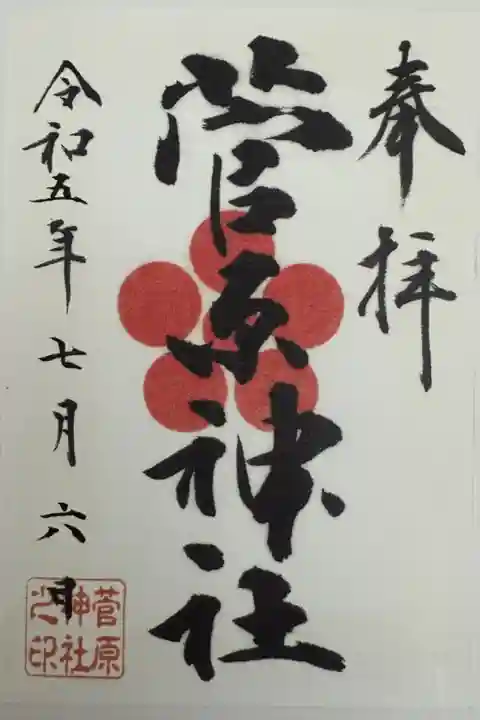 奉拝
菅原神社
令和五年七月六日
菅原
神社
之印